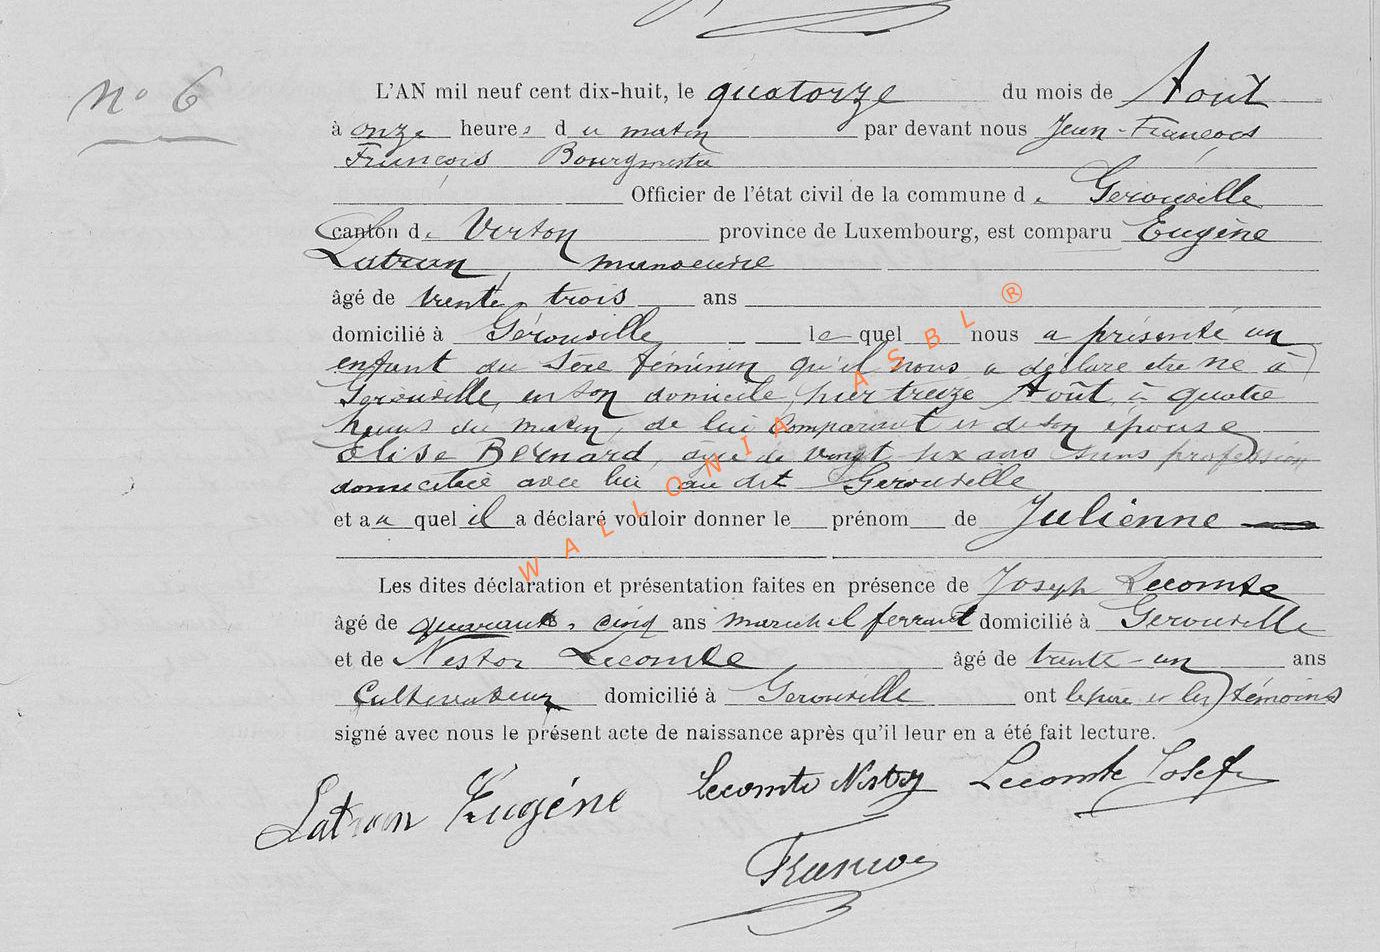 n° 6
L'AN mil neuf cent dix-huit, le quatorze du mois de Août
à onze heures du matin par devant nous Jean-François
François Bourgmestre
Officier de l'état civil de la commune de Gerouville
canton de Virton province de Luxembourg, est comparu Eugène
Latran, manoeuvre
âgé de trente-trois ans
domicilié à Gérouville lequel nous a présenté un
enfant du sexe féminin qu'il nous a déclaré être né à
Gérouville, en son domicile hier treize Août, à quatre
heures du matin, de lui comparant et de son épouse
Elise Bernard, âgée de vingt-six ans sans profession
domiciliée avec lui au dit Gérouville
et au quel il a déclaré vouloir donner le prénom de Julienne
Les dites déclaration et présentation faites en présence de Joseph Lecomte
âgé de quarante-cinq ans maréchal ferrant domicilié à Gerouville
et de Nestor Lecomte âgé de trente-un ans
Cultivateur domicilié à Gerouville ont le père et les témoins
signé avec nous le présent acte de naissance après qu'il leur en a été fait lecture.
Latran Eugéne Lecomte Nestor Lecomte Josef
François
WALLONIA ASBL ®